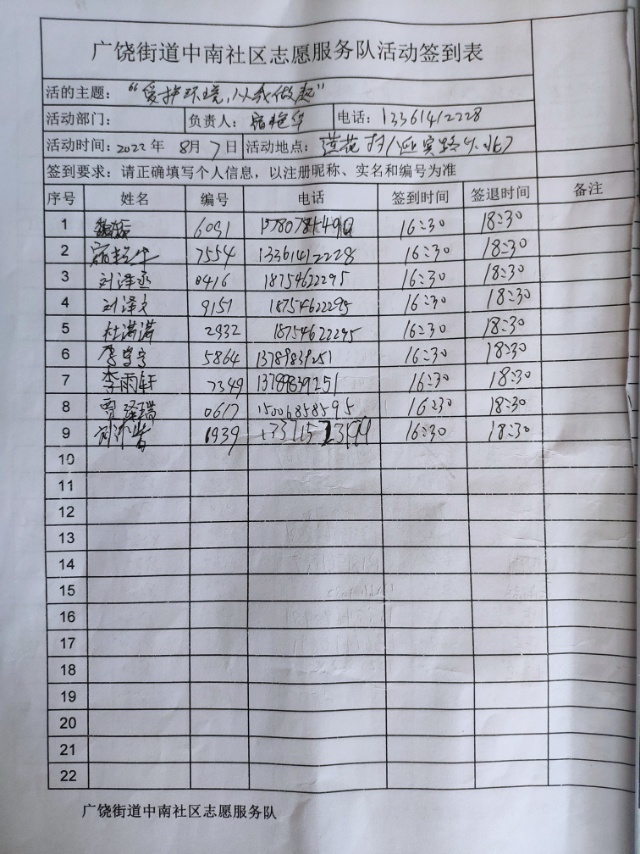 广饶街道中南社区志愿服务队活动签到表
活的主题： “爱护环境，从我做起”
活动部门： 负责人：宿艳华 电话：13361412228
活动时间：2022年 8月 7日 活动地点：莲花
签到要求：请正确填写个人信息，以注册昵称、实名和编号为准
序号 姓名 编号 电话 签到时间 签退时间 备注
1 6091 16:30 18:30
2 宿艳华 7554 13361412228 16:30 18:30
3 刘泽丞 0416 18754622295 16:30 18:30
4 刘泽文 9151 18754622295 16:30 18:30
5 杜满满 2932 18754622295 16:30 18:30
6 5864 13789839251 16:30 18:30
7 李雨轩 7349 13789839251 16:30 18:30
8 贾泽瑞 0617 15006858595 16:30 18:30
9 0939 16:30 18:30
10
11
12
13
14
15
16
17
18
19
20
21
22
广饶街道中南社区志愿服务队